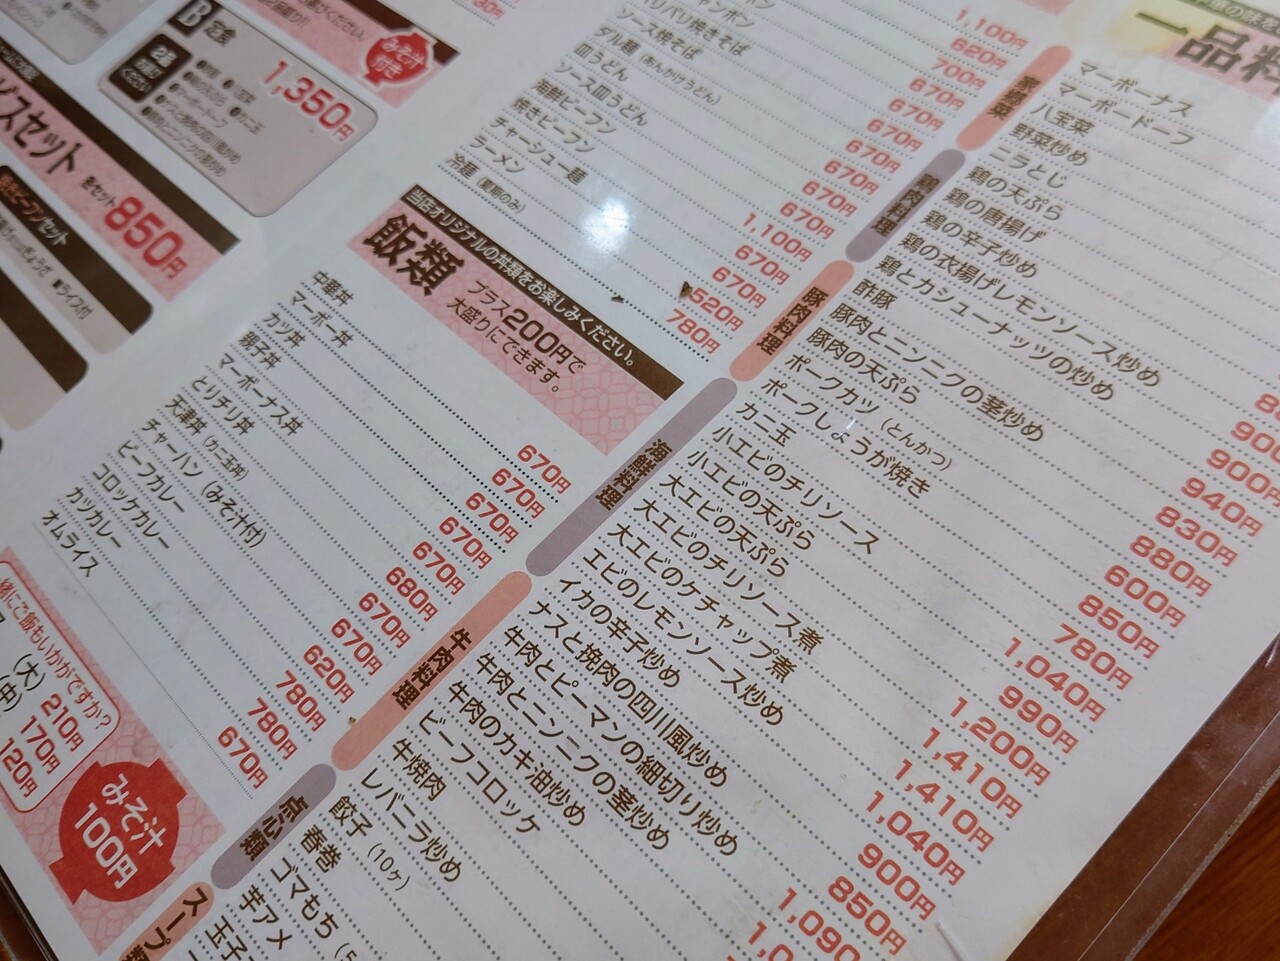 B 定食
1,350円
みそ汁
付き
各セット850円
ライス付
チャンポン
ソース焼そば
(あんかけうどん)
皿うどん
ソース皿うどん
海鮮ビーフン
焼きビーフン
チャーシュー麺
ラーメン
冷麺 (夏期のみ)
1,100円
620円
700円
670円
670円
670円
670円
670円
1,100円
670円
670円
520円
780円
当店オリジナルの丼類をお楽しみください。
飯類
プラス200円で
大盛りにできます。
中華丼
マーボー丼
カツ丼
親子丼
マーボーナス丼
とりチリ丼
天津丼 (カニ玉丼)
チャーハン (みそ汁付)
ビーフカレー
コロッケカレー
カツカレー
オムライス
670円
670円
670円
670円
680円
670円
670円
620円
780円
780円
670円
一緒にご飯もいかがですか?
(大) 210円
(中) 170円
120円
みそ汁
100円
一品料
家常菜
マーボーナス
マーボードーフ
八宝菜
野菜炒め
ニラとじ
鶏肉料理
鶏の天ぷら
鶏の唐揚げ
鶏の辛子炒め
鶏の衣揚げレモンソース炒め
鶏とカシューナッツの炒め
豚肉料理
酢豚
豚肉とニンニクの茎炒め
豚肉の天ぷら
ポークカツ (とんかつ)
ポークしょうが焼き
海鮮料理
カニ玉
小エビのチリソース
小エビの天ぷら
大エビの天ぷら
大エビのチリソース煮
大エビのケチャップ煮
エビのレモンソース炒め
イカの辛子炒め
牛肉料理
ナスと挽肉の四川風炒め
牛肉とピーマンの細切り炒め
牛肉とニンニクの茎炒め
牛肉のカキ油炒め
ビーフコロッケ
牛焼肉
レバニラ炒め
点心類
餃子 (10ヶ)
春巻
ゴマもち
芋アメ
スープ
玉子
900円
940円
830円
880円
600円
850円
780円
1,040円
990円
1,200円
1,410円
1,410円
1,040円
900円
850円
1,090